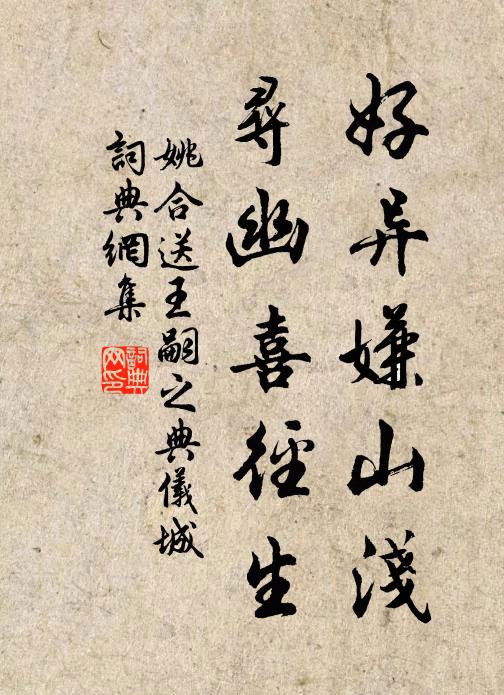 好异嫌山淺
尋幽喜徑生
姚合送王嗣之典儀城
詞典網集
詞典
网印